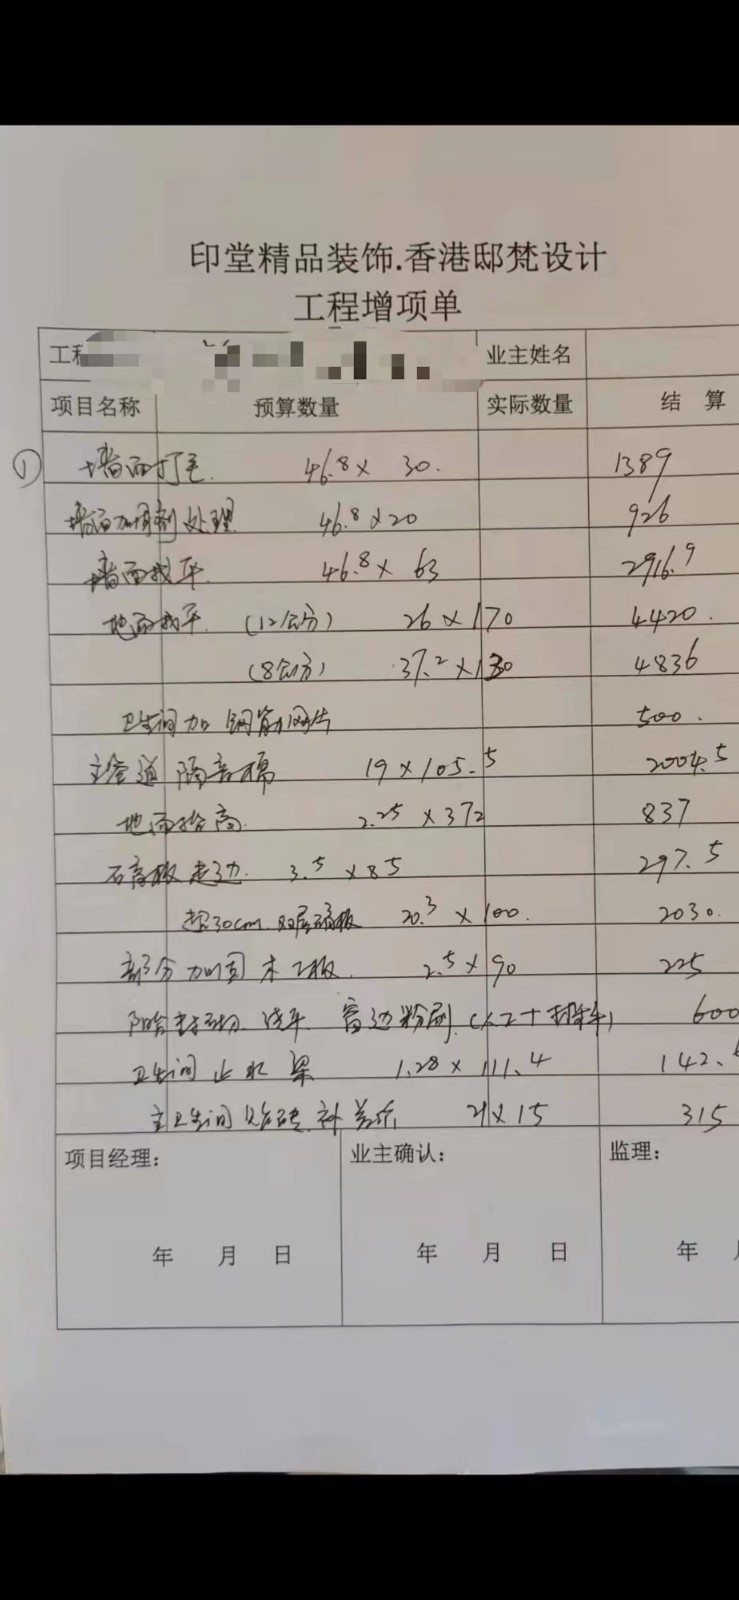 印堂精品装饰.香港邸梵设计
工程增项单
工程 业主姓名
项目名称 预算数量 实际数量 结 算
① 墙面打毛 46.8 × 30. 1389
墙面加固剂处理 46.8 × 20 926
墙面找平. 46.8 × 63 2916.9
地面找平. (12公分) 26 × 170 4420.
(8公分) 37.2 × 130 4836
卫生间加 钢筋网片 500.
主管道 隔音棉 19 × 105.5 2004.5
地面抬高. 2.25 × 372 837
石膏板走边. 3.5 × 85 297.5
超30cm 双层石膏板 20.3 × 100. 2030.
部分加固木工板. 2.5 × 90 225
阳台 窗边粉刷 (人工+材料) 600
卫生间止水梁 1.28 × 111.4 142.
主卫生间 砖补差价 21 × 15 315
项目经理： 业主确认： 监理：
年 月 日 年 月 日 年